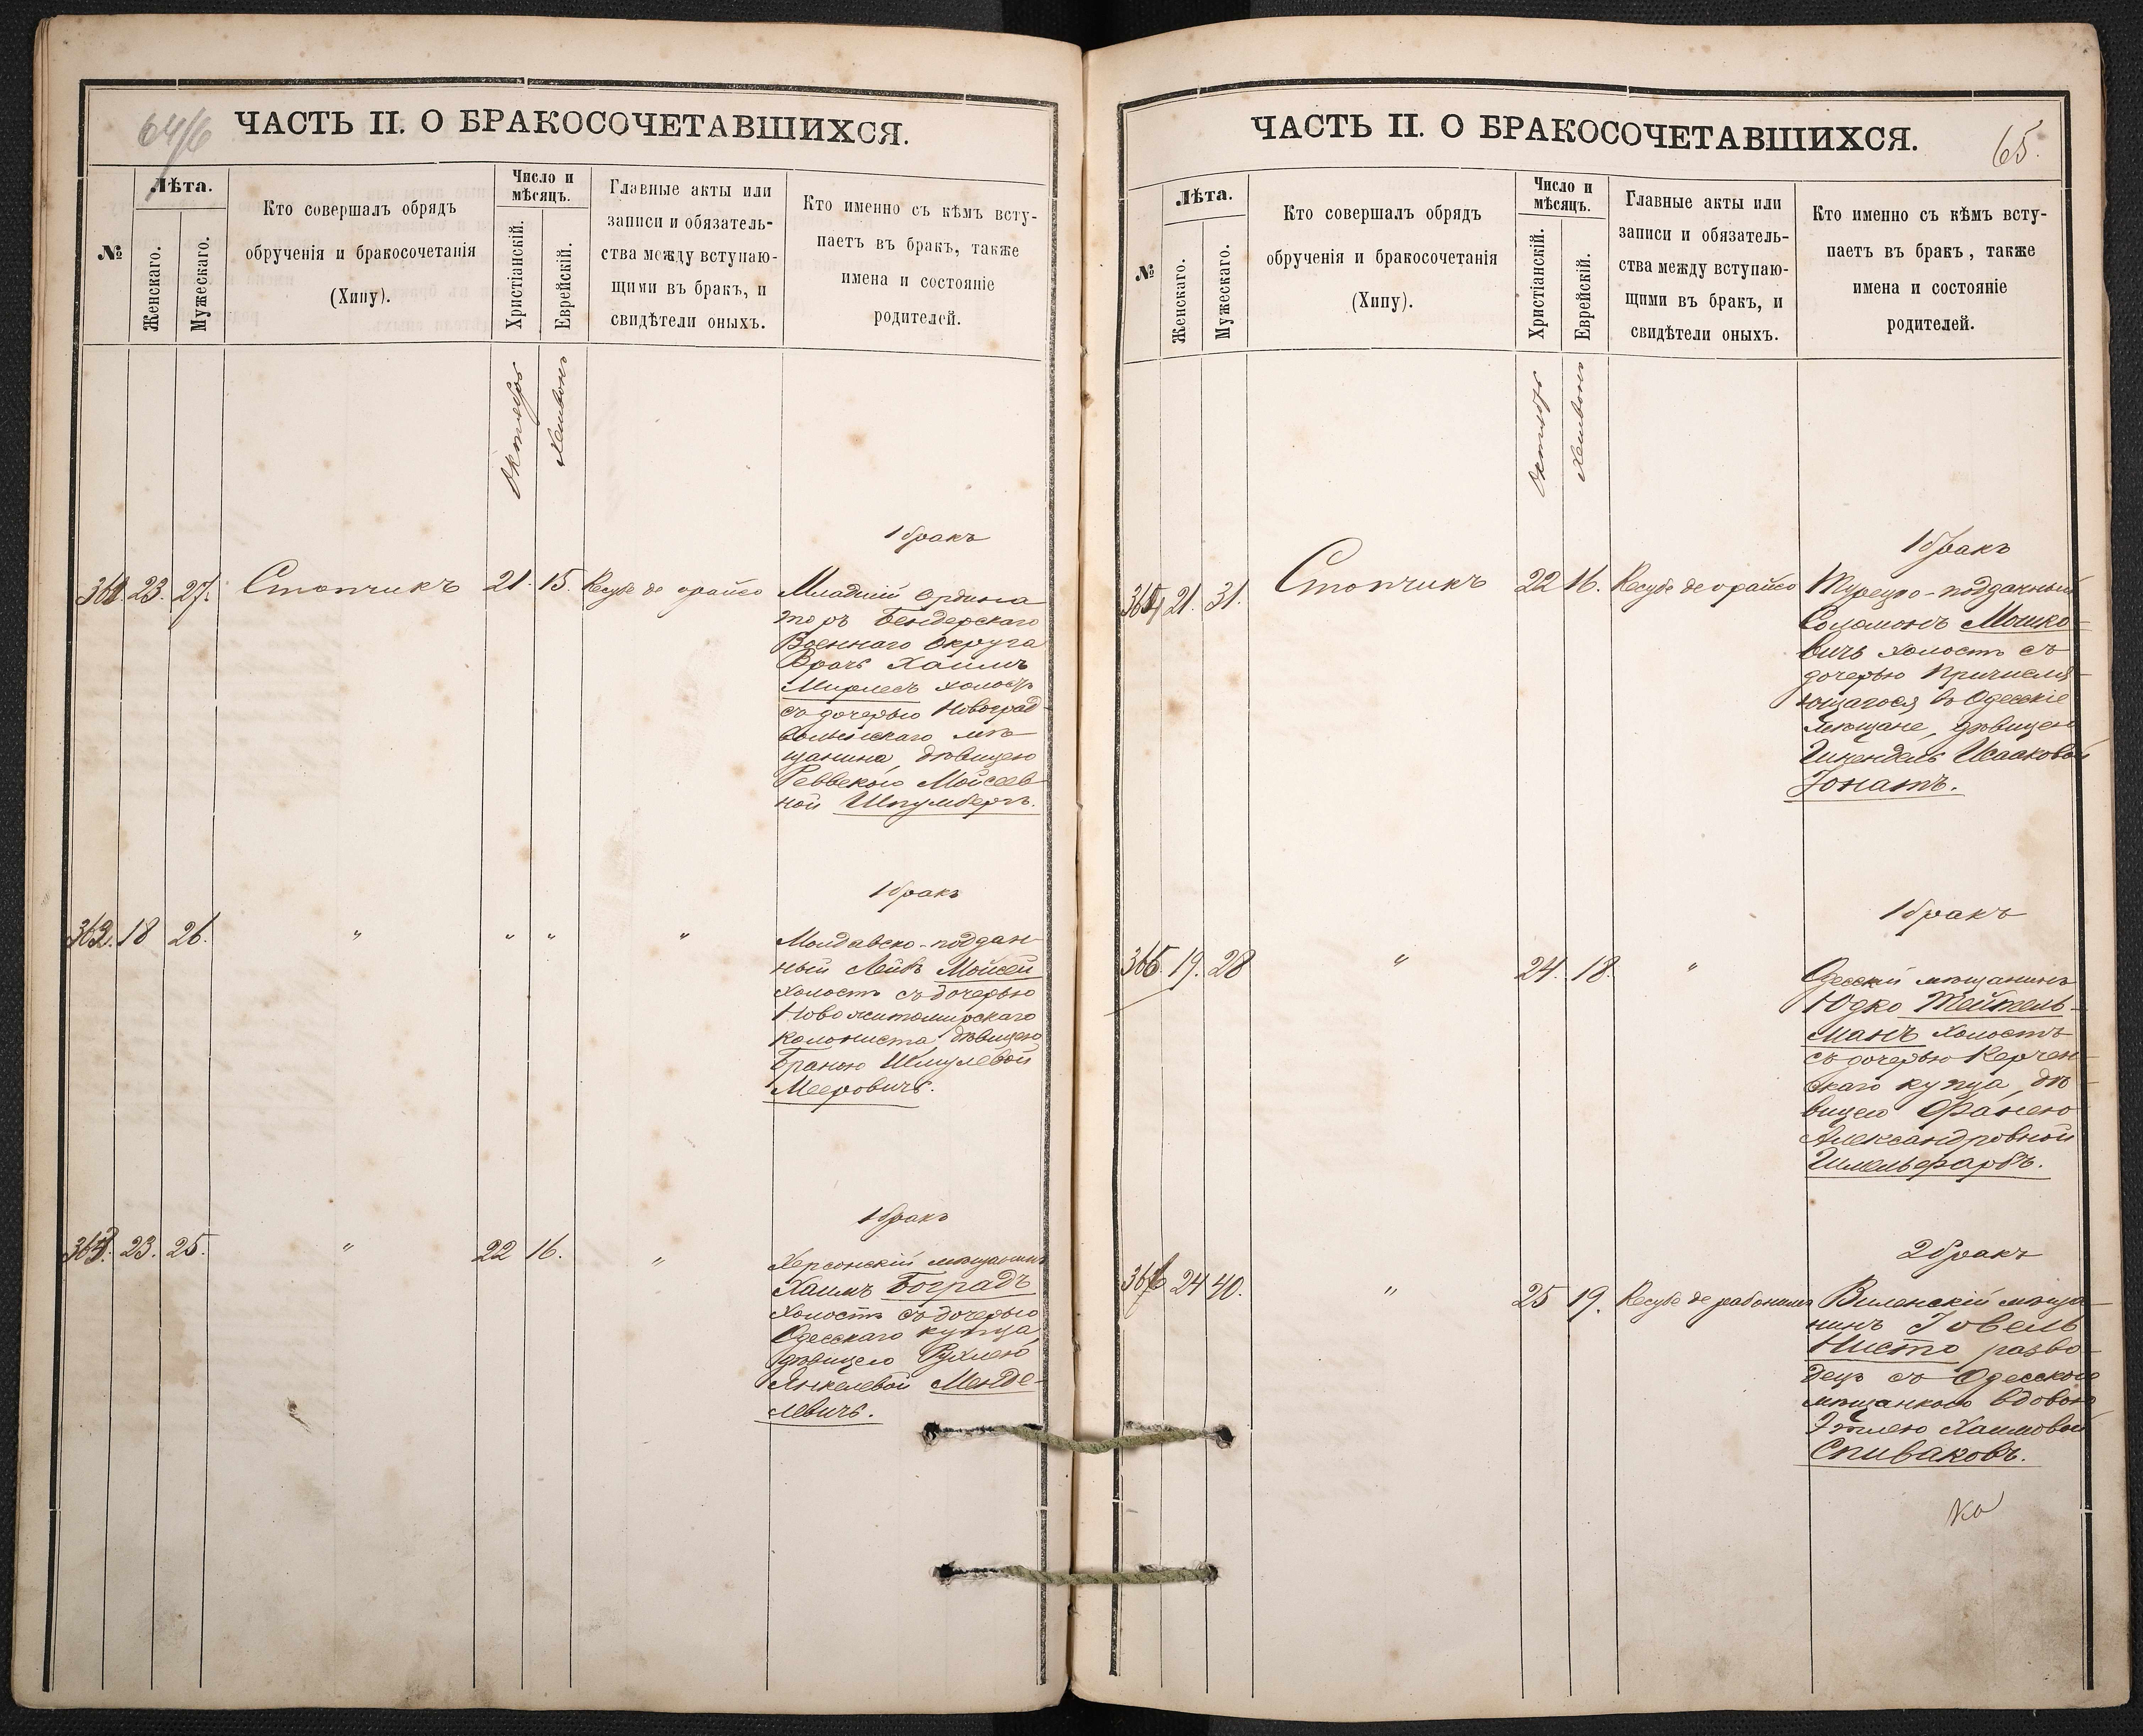 64/6
ЧАСТЬ II. О БРАКОСОЧЕТАВШИХСЯ.
№
Лѣта.
Женскаго.
Мужескаго.
Кто совершалъ обрядъ
обрученія и бракосочетанія
(Хипу).
Число и
мѣсяцъ.
Христіанскій.
Еврейскій.
Главные акты или
записи и обязатель-
ства между вступаю-
щими въ бракъ, и
свидѣтели оныхъ.
Кто именно съ кѣмъ всту-
паетъ въ бракъ, также
имена и состояніе
родителей.
Октябрь
Хешвонъ
1 бракъ
361. 23. 27. Стопчикъ 21. 15. Кесубе де орайсо
Младшій ордина
торъ Бендерскаго
Военнаго Округа
Врачъ Хаимъ
Мирлесъ холостъ
съ дочерью Новоград
волынскаго мѣ
щанина, дѣвицею
Реввекою Мойсеев
ной Шпумбергъ.
1 бракъ
362. 18 26. " " " "
Молдавско-поддан
ный Лейбъ Мойсей
холостъ съ дочерью
Новожитомирскаго
колониста дѣвицею
Бранею Шмулевой
Мееровичъ.
1 бракъ
363. 23. 25. " 22 16. "
Херсонскій мѣщанинъ
Хаимъ Боградъ
холостъ съ дочерью
Одесскаго купца,
дѣвицею Рухлею
Янкелевой Менде-
левичъ.
65.
ЧАСТЬ II. О БРАКОСОЧЕТАВШИХСЯ.
№
Лѣта.
Женскаго.
Мужескаго.
Кто совершалъ обрядъ
обрученія и бракосочетанія
(Хипу).
Число и
мѣсяцъ.
Христіанскій.
Еврейскій.
Главные акты или
записи и обязатель-
ства между вступаю-
щими въ бракъ, и
свидѣтели оныхъ.
Кто именно съ кѣмъ всту-
паетъ въ бракъ, также
имена и состояніе
родителей.
Октябрь
Хешвонъ
1 бракъ
364 21. 31. Стопчикъ 22 16. Кесубе де орайсо
Турецко-подданный
Соломонъ Мошко-
вичъ холостъ съ
дочерью Причисля-
ющагося въ Одесскіе
мѣщане, дѣвицею
Шкендель Исааковой
Іонатъ.
1 бракъ
365. 19. 28 " 24. 18. "
Одесскій мѣщанинъ
Юдко Тейтель-
манъ холостъ
съ дочерью Керчен-
скаго купца, дѣ-
вицею Фанею
Александровной
Шмельфарбъ.
2 бракъ
366 24 40. " 25 19. Кесубе де рабонимъ
Виленскій мѣща-
нинъ Говель
Нисто разво-
децъ съ Одесскою
мѣщанкою вдовою
Этлею Хаимовой
Спиваковъ.